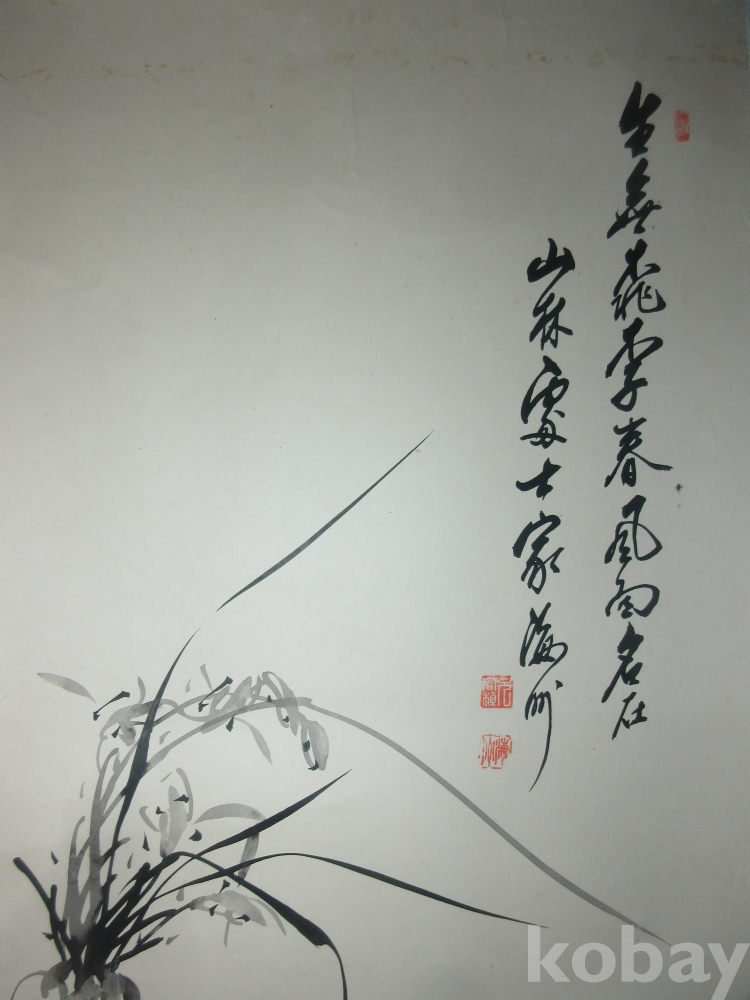 生無桃李春風面名在
山林處士家 海州
kobay